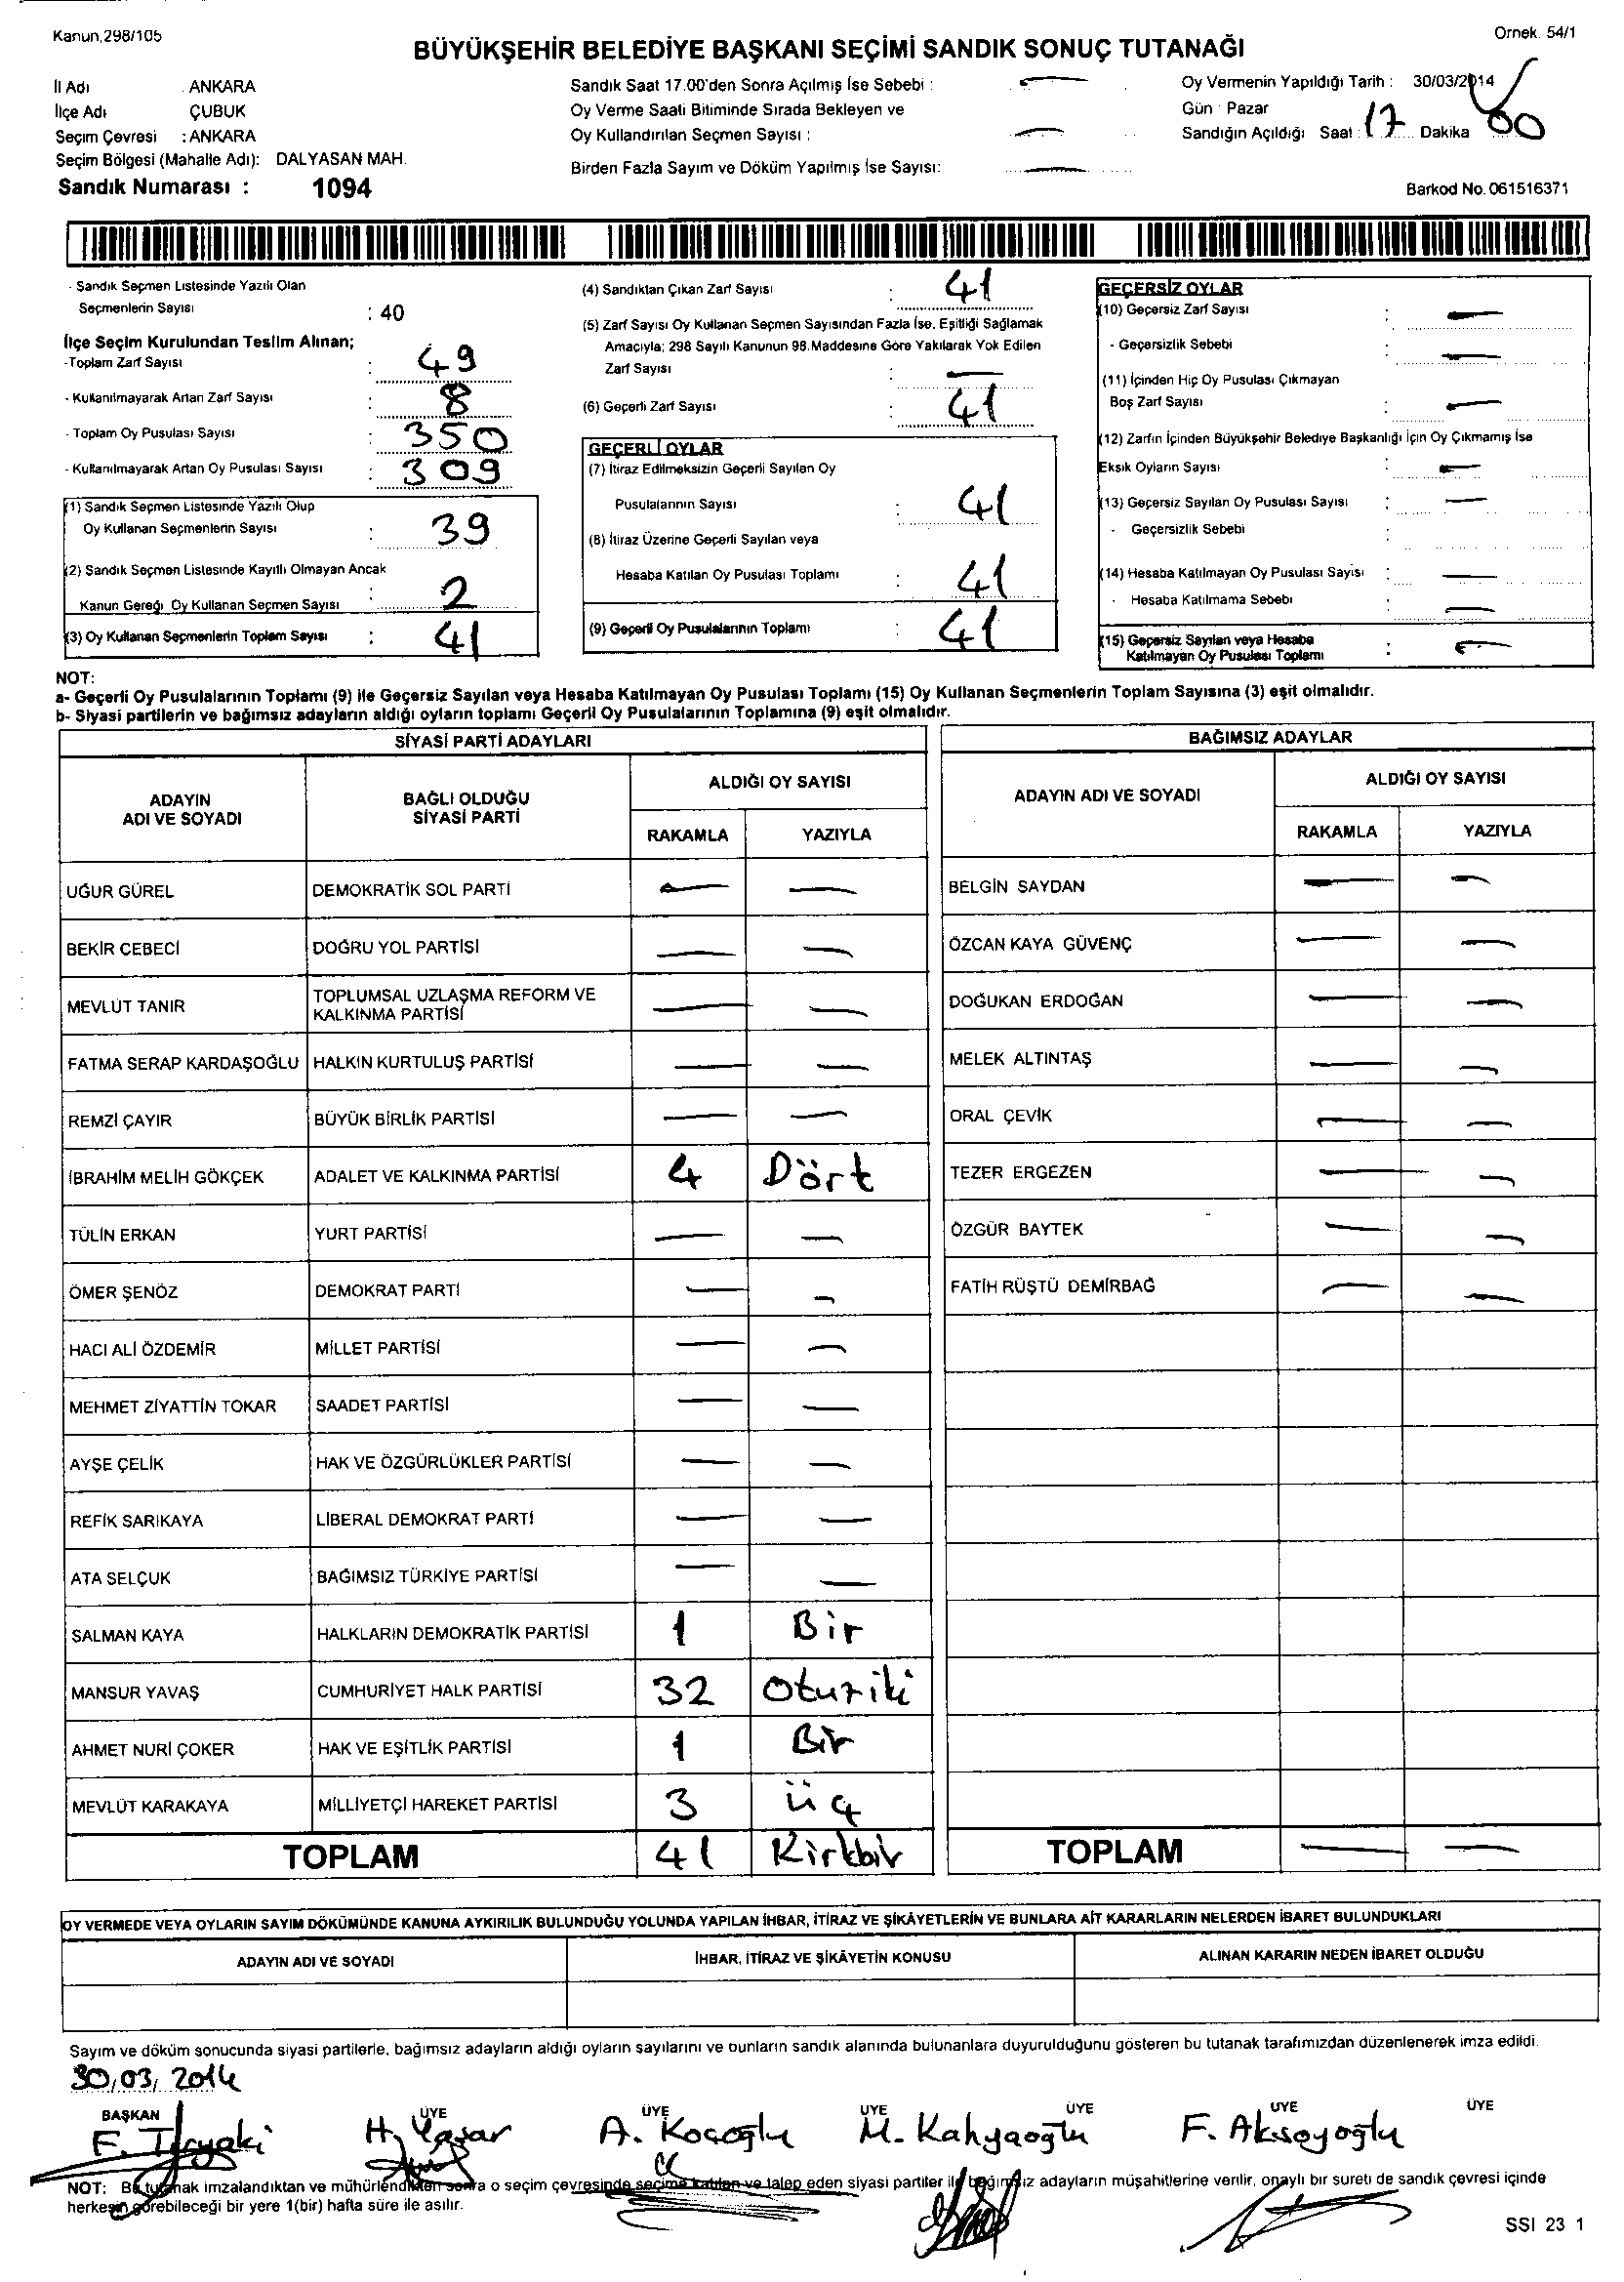 Kanun,298/105
Ornek. 54/1
BÜYÜKŞEHİR BELEDİYE BAŞKANI SEÇİMİ SANDIK SONUÇ TUTANAĞI
İl Adı : ANKARA
İlçe Adı ÇUBUK
Seçim Çevresi : ANKARA
Seçim Bölgesi (Mahalle Adı): DALYASAN MAH.
Sandık Numarası : 1094
Sandık Saat 17.00'den Sonra Açılmış İse Sebebi : —
Oy Verme Saati Bitiminde Sırada Bekleyen ve
Oy Kullandırılan Seçmen Sayısı : —
Birden Fazla Sayım ve Döküm Yapılmış İse Sayısı: —
Oy Vermenin Yapıldığı Tarih : 30/03/2014
Gün : Pazar
Sandığın Açıldığı Saat : 17 Dakika 00
Barkod No. 061516371
- Sandık Seçmen Listesinde Yazılı Olan
Seçmenlerin Sayısı : 40
İlçe Seçim Kurulundan Teslim Alınan;
-Toplam Zarf Sayısı : 49
- Kullanılmayarak Artan Zarf Sayısı : 8
- Toplam Oy Pusulası Sayısı : 350
- Kullanılmayarak Artan Oy Pusulası Sayısı : 309
(1) Sandık Seçmen Listesinde Yazılı Olup
Oy Kullanan Seçmenlerin Sayısı : 39
(2) Sandık Seçmen Listesinde Kayıtlı Olmayan Ancak
Kanun Gereği Oy Kullanan Seçmen Sayısı : 2
(3) Oy Kullanan Seçmenlerin Toplam Sayısı : 41
(4) Sandıktan Çıkan Zarf Sayısı : 41
(5) Zarf Sayısı Oy Kullanan Seçmen Sayısından Fazla İse, Eşitliği Sağlamak
Amacıyla; 298 Sayılı Kanunun 98.Maddesine Göre Yakılarak Yok Edilen
Zarf Sayısı : —
(6) Geçerli Zarf Sayısı : 41
GEÇERLİ OYLAR
(7) İtiraz Edilmeksizin Geçerli Sayılan Oy
Pusulalarının Sayısı : 41
(8) İtiraz Üzerine Geçerli Sayılan veya
Hesaba Katılan Oy Pusulası Toplamı : 41
(9) Geçerli Oy Pusulalarının Toplamı : 41
GEÇERSİZ OYLAR
(10) Geçersiz Zarf Sayısı : —
- Geçersizlik Sebebi : —
(11) İçinden Hiç Oy Pusulası Çıkmayan
Boş Zarf Sayısı : —
(12) Zarfın İçinden Büyükşehir Belediye Başkanlığı İçin Oy Çıkmamış İse
Eksik Oyların Sayısı : —
(13) Geçersiz Sayılan Oy Pusulası Sayısı : —
- Geçersizlik Sebebi :
(14) Hesaba Katılmayan Oy Pusulası Sayısı : —
- Hesaba Katılmama Sebebi : —
(15) Geçersiz Sayılan veya Hesaba
Katılmayan Oy Pusulası Toplamı : —
NOT:
a- Geçerli Oy Pusulalarının Toplamı (9) ile Geçersiz Sayılan veya Hesaba Katılmayan Oy Pusulası Toplamı (15) Oy Kullanan Seçmenlerin Toplam Sayısına (3) eşit olmalıdır.
b- Siyasi partilerin ve bağımsız adayların aldığı oyların toplamı Geçerli Oy Pusulalarının Toplamına (9) eşit olmalıdır.
SİYASİ PARTİ ADAYLARI
ADAYIN ADI VE SOYADI BAĞLI OLDUĞU SİYASİ PARTİ ALDIĞI OY SAYISI
RAKAMLA YAZIYLA
UĞUR GÜREL DEMOKRATİK SOL PARTİ — —
BEKİR CEBECİ DOĞRU YOL PARTİSİ — —
MEVLÜT TANIR TOPLUMSAL UZLAŞMA REFORM VE KALKINMA PARTİSİ — —
FATMA SERAP KARDAŞOĞLU HALKIN KURTULUŞ PARTİSİ — —
REMZİ ÇAYIR BÜYÜK BİRLİK PARTİSİ — —
İBRAHİM MELİH GÖKÇEK ADALET VE KALKINMA PARTİSİ 4 Dört
TÜLİN ERKAN YURT PARTİSİ — —
ÖMER ŞENÖZ DEMOKRAT PARTİ — —
HACI ALİ ÖZDEMİR MİLLET PARTİSİ — —
MEHMET ZİYATTİN TOKAR SAADET PARTİSİ — —
AYŞE ÇELİK HAK VE ÖZGÜRLÜKLER PARTİSİ — —
REFİK SARIKAYA LİBERAL DEMOKRAT PARTİ — —
ATA SELÇUK BAĞIMSIZ TÜRKİYE PARTİSİ — —
SALMAN KAYA HALKLARIN DEMOKRATİK PARTİSİ 1 Bir
MANSUR YAVAŞ CUMHURİYET HALK PARTİSİ 32 Otuziki
AHMET NURİ ÇOKER HAK VE EŞİTLİK PARTİSİ 1 Bir
MEVLÜT KARAKAYA MİLLİYETÇİ HAREKET PARTİSİ 3 üç
TOPLAM 41 Kırkbir
BAĞIMSIZ ADAYLAR
ADAYIN ADI VE SOYADI ALDIĞI OY SAYISI
RAKAMLA YAZIYLA
BELGİN SAYDAN — —
ÖZCAN KAYA GÜVENÇ — —
DOĞUKAN ERDOĞAN — —
MELEK ALTINTAŞ — —
ORAL ÇEVİK — —
TEZER ERGEZEN — —
ÖZGÜR BAYTEK — —
FATİH RÜŞTÜ DEMİRBAĞ — —
TOPLAM — —
OY VERMEDE VEYA OYLARIN SAYIM DÖKÜMÜNDE KANUNA AYKIRILIK BULUNDUĞU YOLUNDA YAPILAN İHBAR, İTİRAZ VE ŞİKÂYETLERİN VE BUNLARA AİT KARARLARIN NELERDEN İBARET BULUNDUKLARI
ADAYIN ADI VE SOYADI İHBAR, İTİRAZ VE ŞİKÂYETİN KONUSU ALINAN KARARIN NEDEN İBARET OLDUĞU
Sayım ve döküm sonucunda siyasi partilerle, bağımsız adayların aldığı oyların sayılarını ve bunların sandık alanında bulunanlara duyurulduğunu gösteren bu tutanak tarafımızdan düzenlenerek imza edildi.
30,03,2014
BAŞKAN ÜYE ÜYE ÜYE ÜYE ÜYE ÜYE
F. Tiryaki H. Yaşar A. Koçoğlu M. Kahyaoğlu F. Aksoyoğlu
NOT: Bu tutanak imzalandıktan ve mühürlendikten sonra o seçim çevresinde seçime katılan ve talep eden siyasi partiler ile bağımsız adayların müşahitlerine verilir, onaylı bir sureti de sandık çevresi içinde
herkesin görebileceği bir yere 1(bir) hafta süre ile asılır.
SSI 23 1